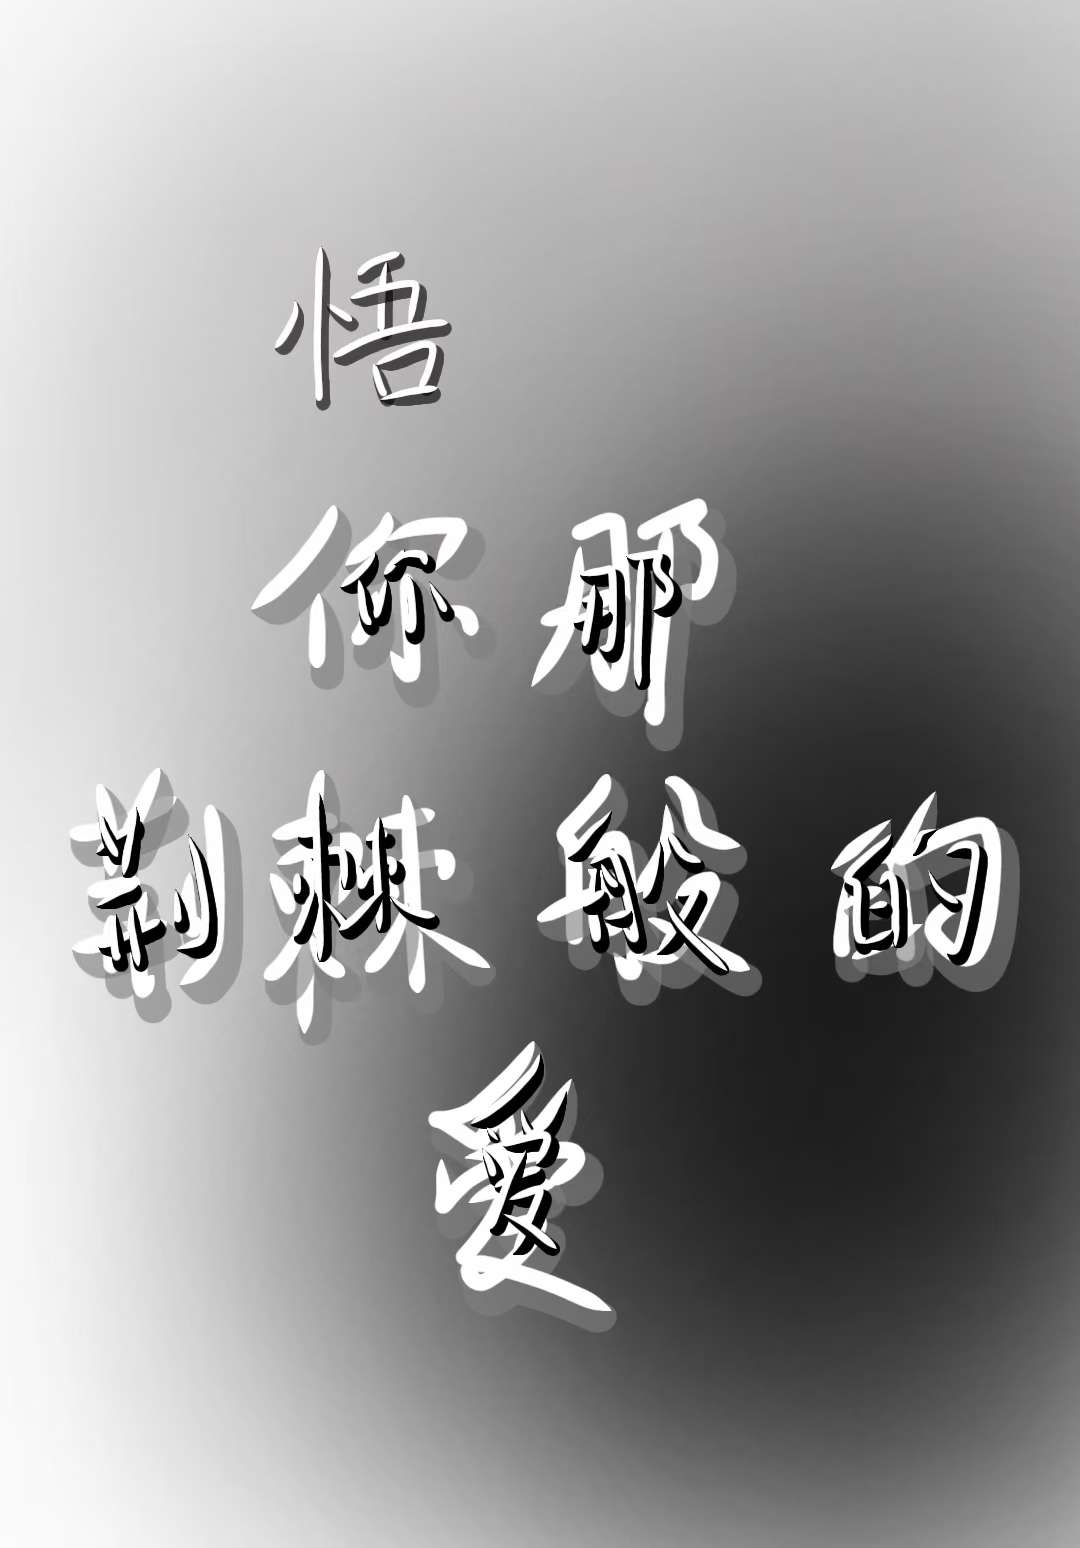 悟
你那
荆棘般的
愛